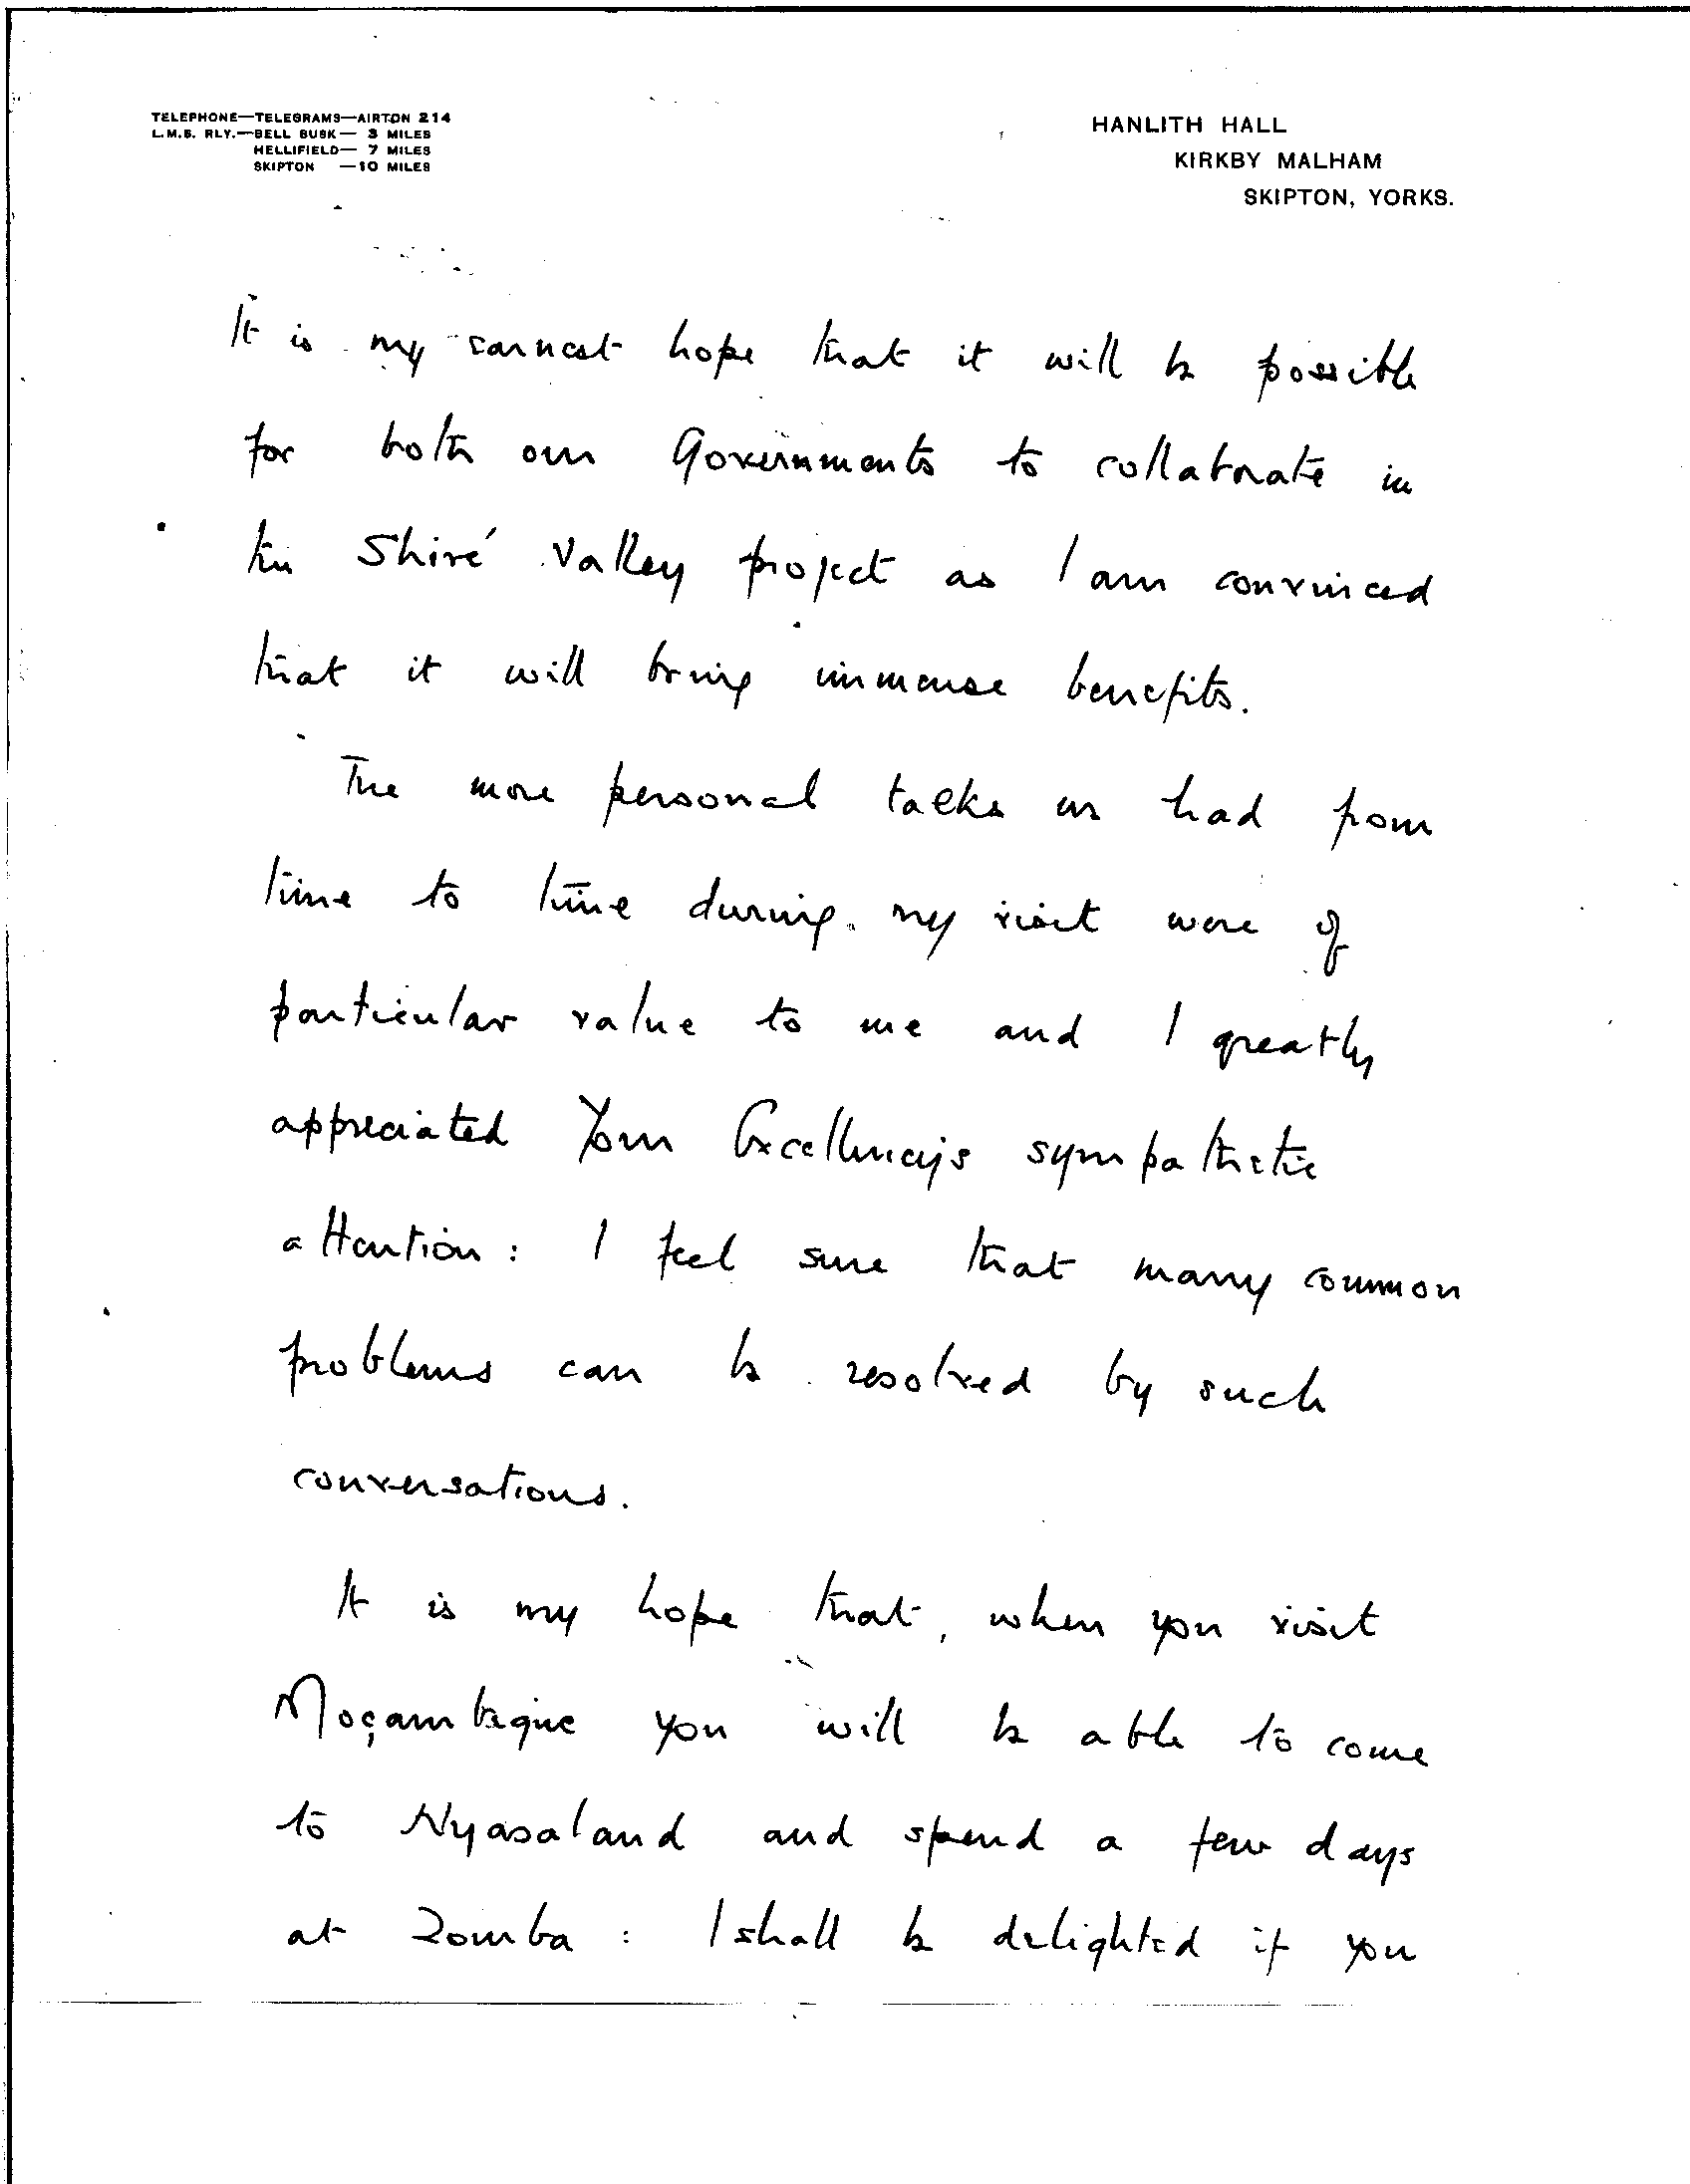 TELEPHONE—TELEGRAMS—AIRTON 214
L.M.S. RLY.—BELL BUSK— 3 MILES
HELLIFIELD— 7 MILES
SKIPTON —10 MILES
HANLITH HALL
KIRKBY MALHAM
SKIPTON, YORKS.
It is my earnest hope that it will be possible
for both our Governments to collaborate in
the Shiré Valley project as I am convinced
that it will bring immense benefits.
The more personal talks we had from
time to time during my visit were of
particular value to me and I greatly
appreciated Your Excellency's sympathetic
attention: I feel sure that many common
problems can be resolved by such
conversations.
It is my hope that, when you visit
Moçambique you will be able to come
to Nyasaland and spend a few days
at Zomba: I shall be delighted if you